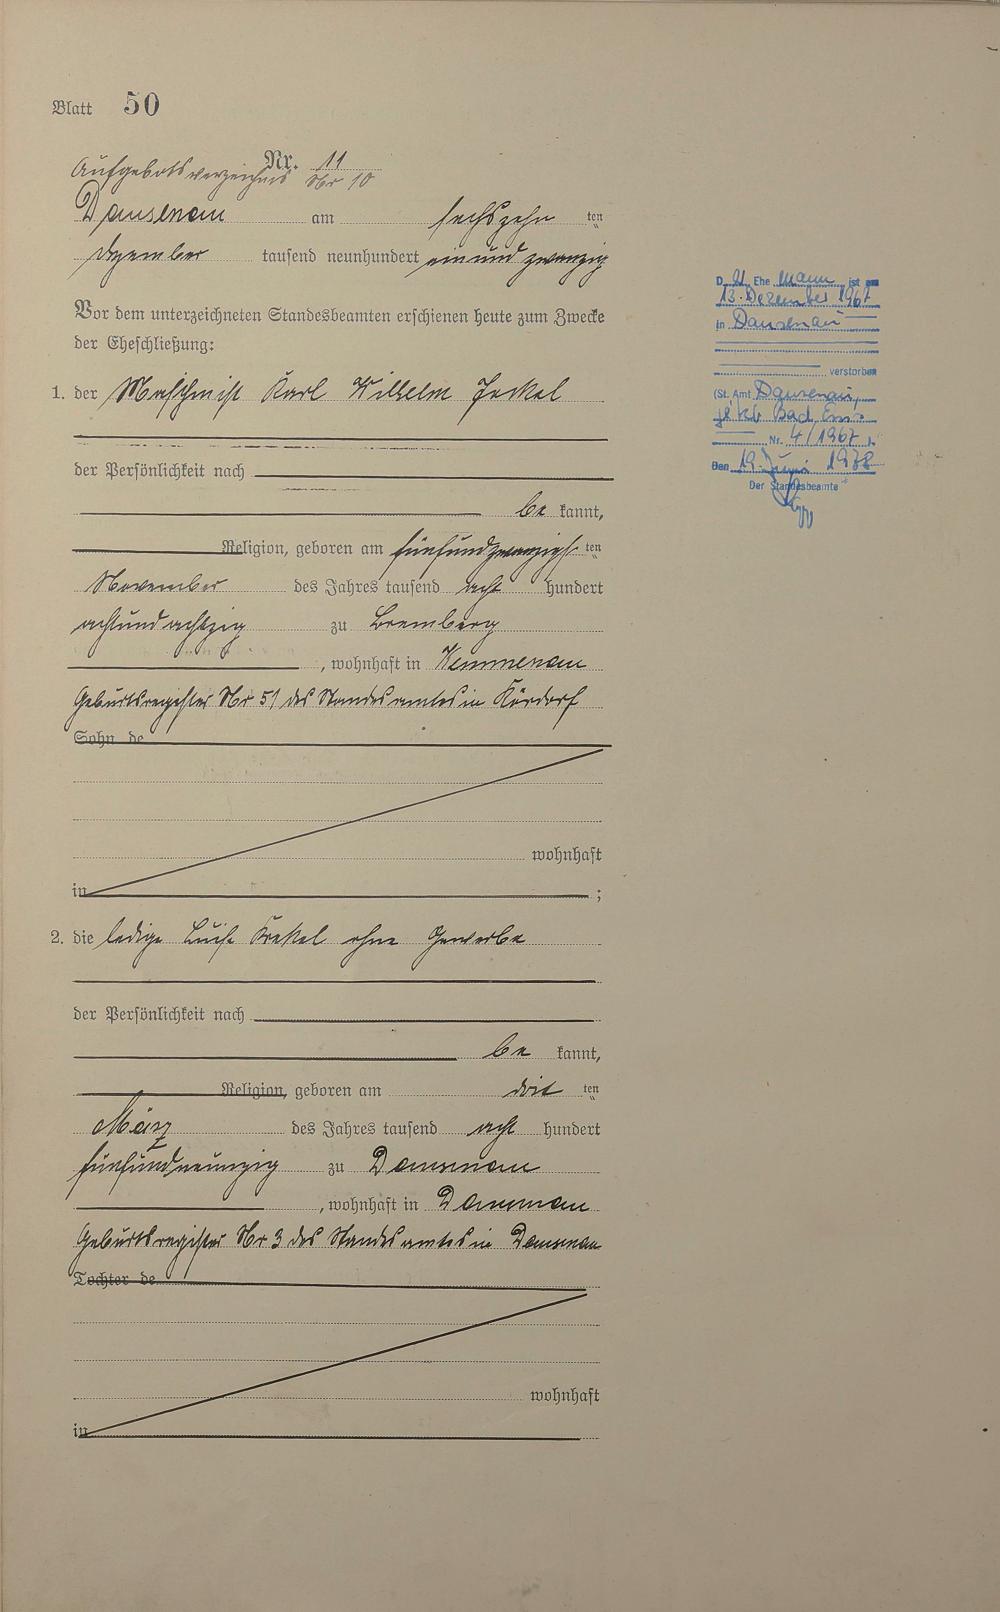 Blatt 50
Nr. 11
Aufgebotsverzeichnis Nr 10
Dausenau am sechszehn ten
Dezember tausend neunhundert ein und zwanzig
Vor dem unterzeichneten Standesbeamten erschienen heute zum Zwecke
der Eheschließung:
1. der Maschinist Karl Wilhelm Jeckel
der Persönlichkeit nach
be kannt,
Religion, geboren am fünfundzwanzigs ten
November des Jahres tausend acht hundert
achtundachtzig zu Bremberg
, wohnhaft in Kemmenau
Geburtsregister Nr 51 des Standesamtes in Kördorf
Sohn de
wohnhaft
in ;
2. die ledige Luise Krekel ohne Gewerbe
der Persönlichkeit nach
be kannt,
Religion, geboren am drit ten
März des Jahres tausend acht hundert
fünfundneunzig zu Dausenau
, wohnhaft in Dausenau
Geburtsregister Nr 3 des Standesamtes in Dausenau
Tochter de
wohnhaft
in
D Ehe mann ist am
13. Dezember 1967
in Dausenau
verstorben
(St. Amt Dausenau,
jetzt Bad Ems
Nr. 4/1967
Den 19. Juni 1978
Der Standesbeamte